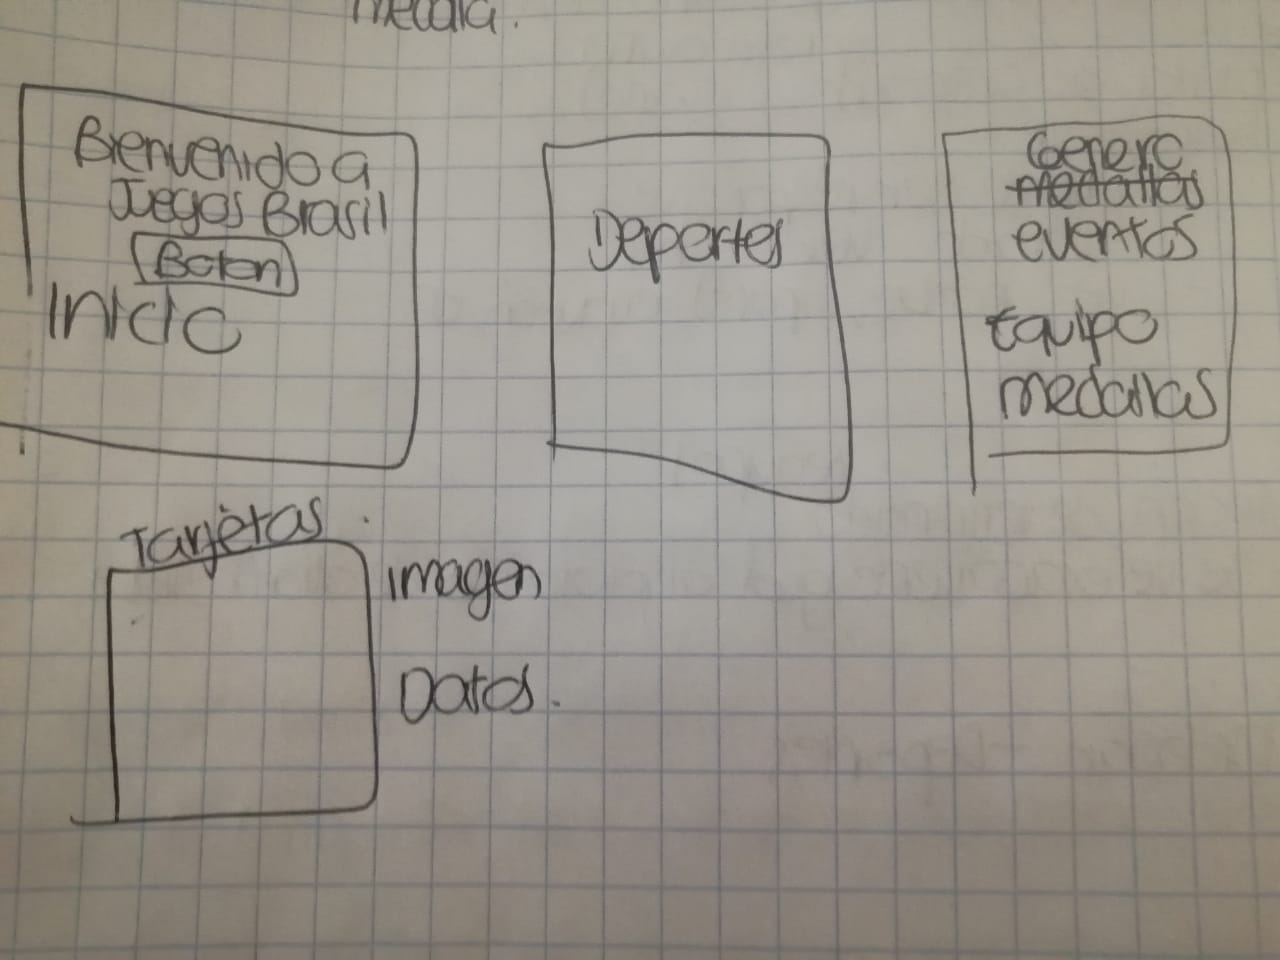 medala.
Bienvenido a
Juegos Brasil
Boton
Inicio
Deportes
Genero
medallas
eventos
Equipo
medallas
Tarjetas.
imagen
Datos.